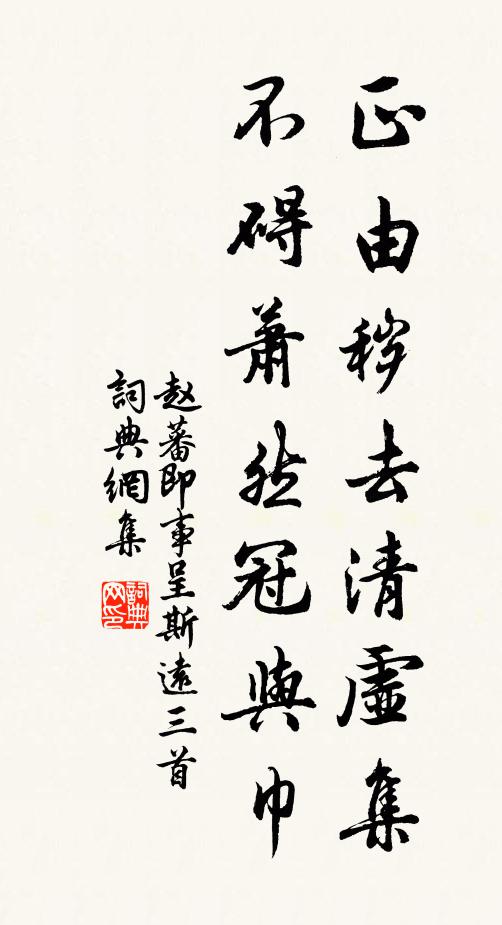 正由秽去清虚集
不碍萧然冠與巾
赵蕃即事呈斯遠三首
詞典網集
詞典网印